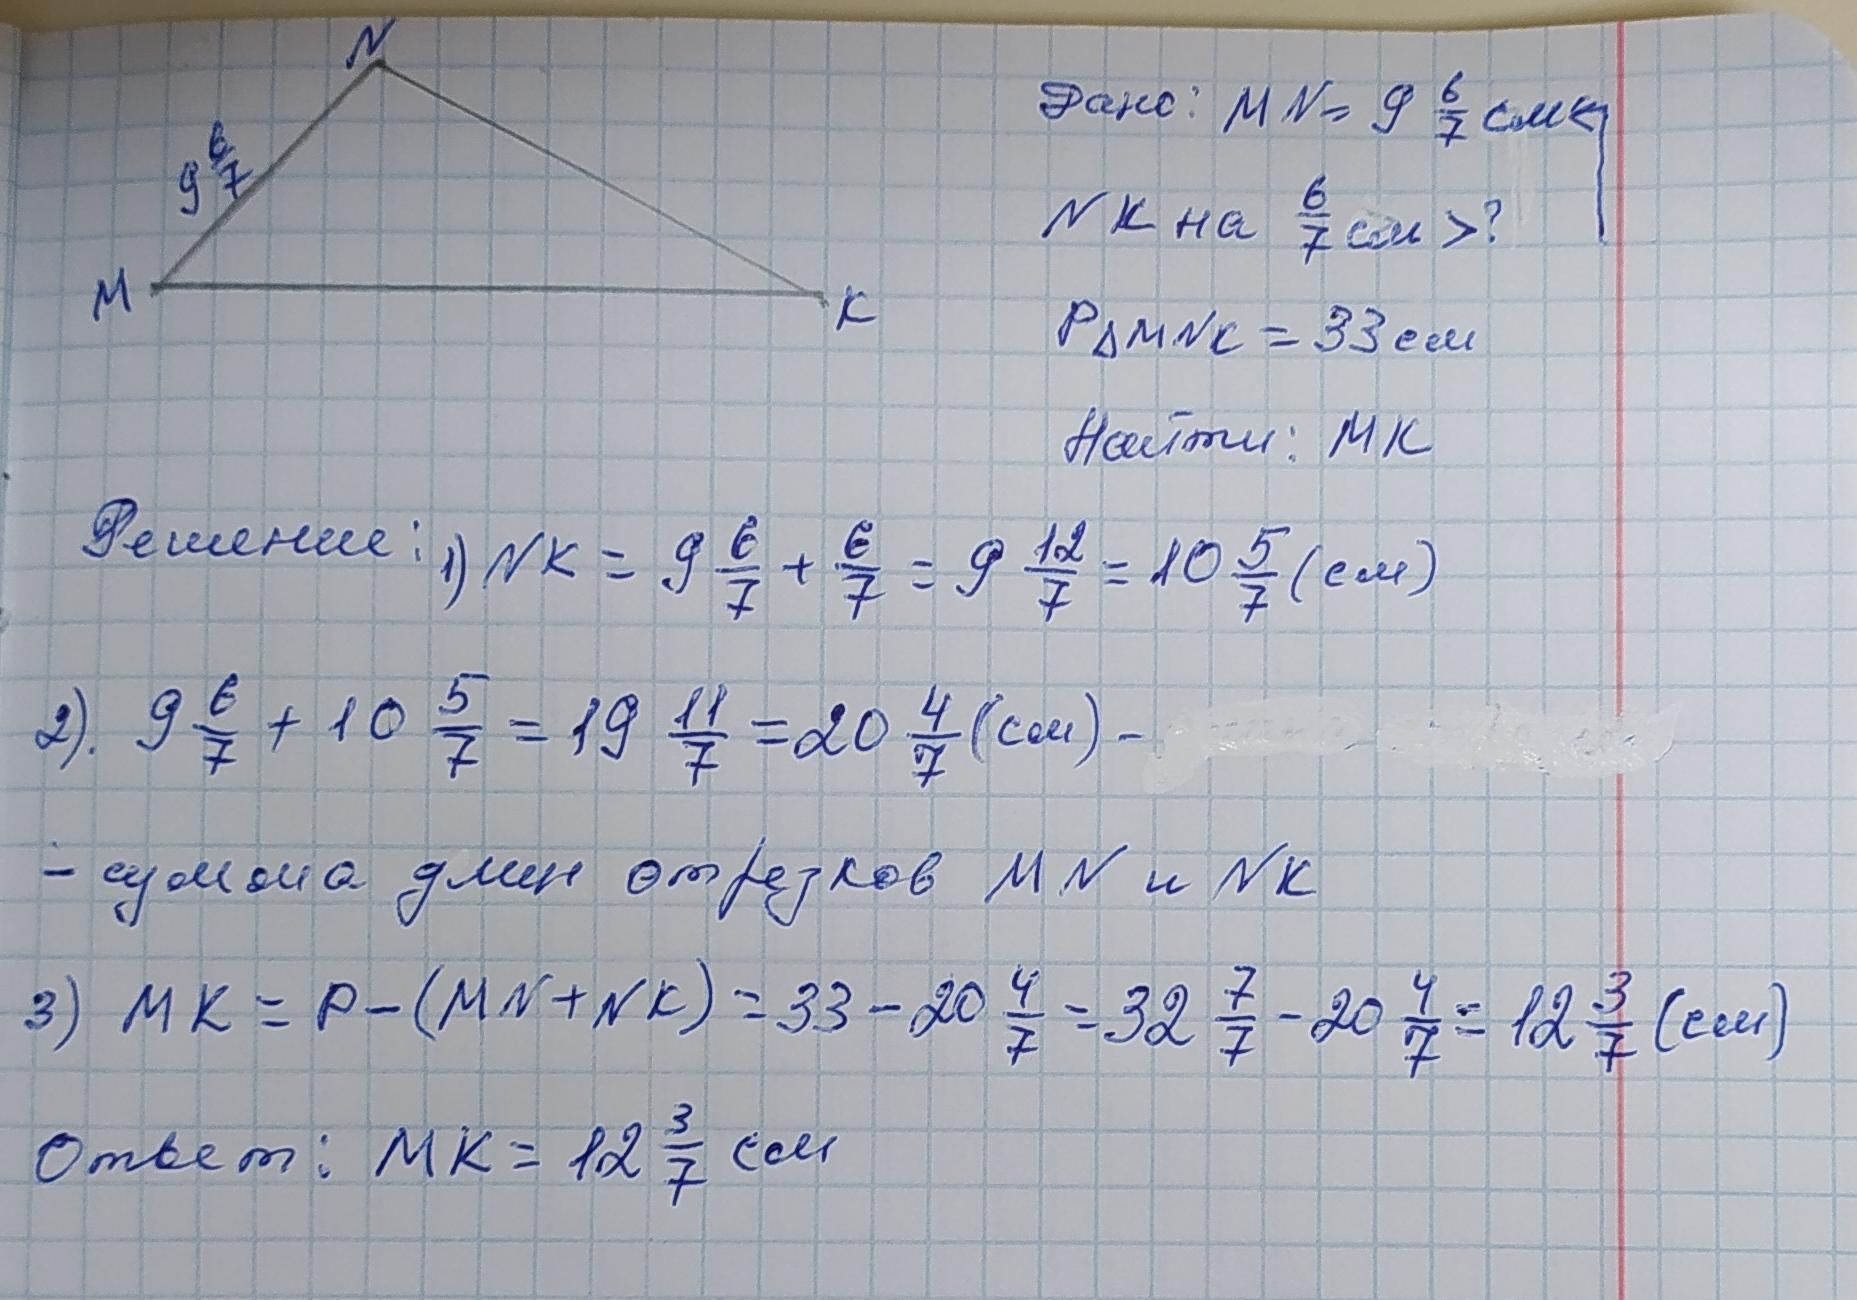 N
9 6/7
M
K
Дано: MN = 9 6/7 см
NK на 6/7 см > ?
P△MNK = 33 см
Найти: MK
Решение: 1) NK = 9 6/7 + 6/7 = 9 12/7 = 10 5/7 (см)
2). 9 6/7 + 10 5/7 = 19 11/7 = 20 4/7 (см) -
- сумма длин отрезков MN и NK
3) MK = P - (MN + NK) = 33 - 20 4/7 = 32 7/7 - 20 4/7 = 12 3/7 (см)
Ответ: MK = 12 3/7 см